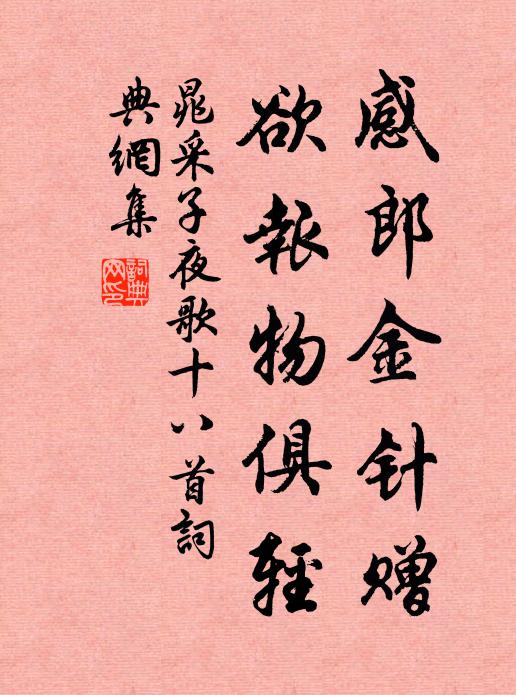 感郎金针赠
欲報物俱輕
晁采子夜歌十八首詞
典網集
詞典网印